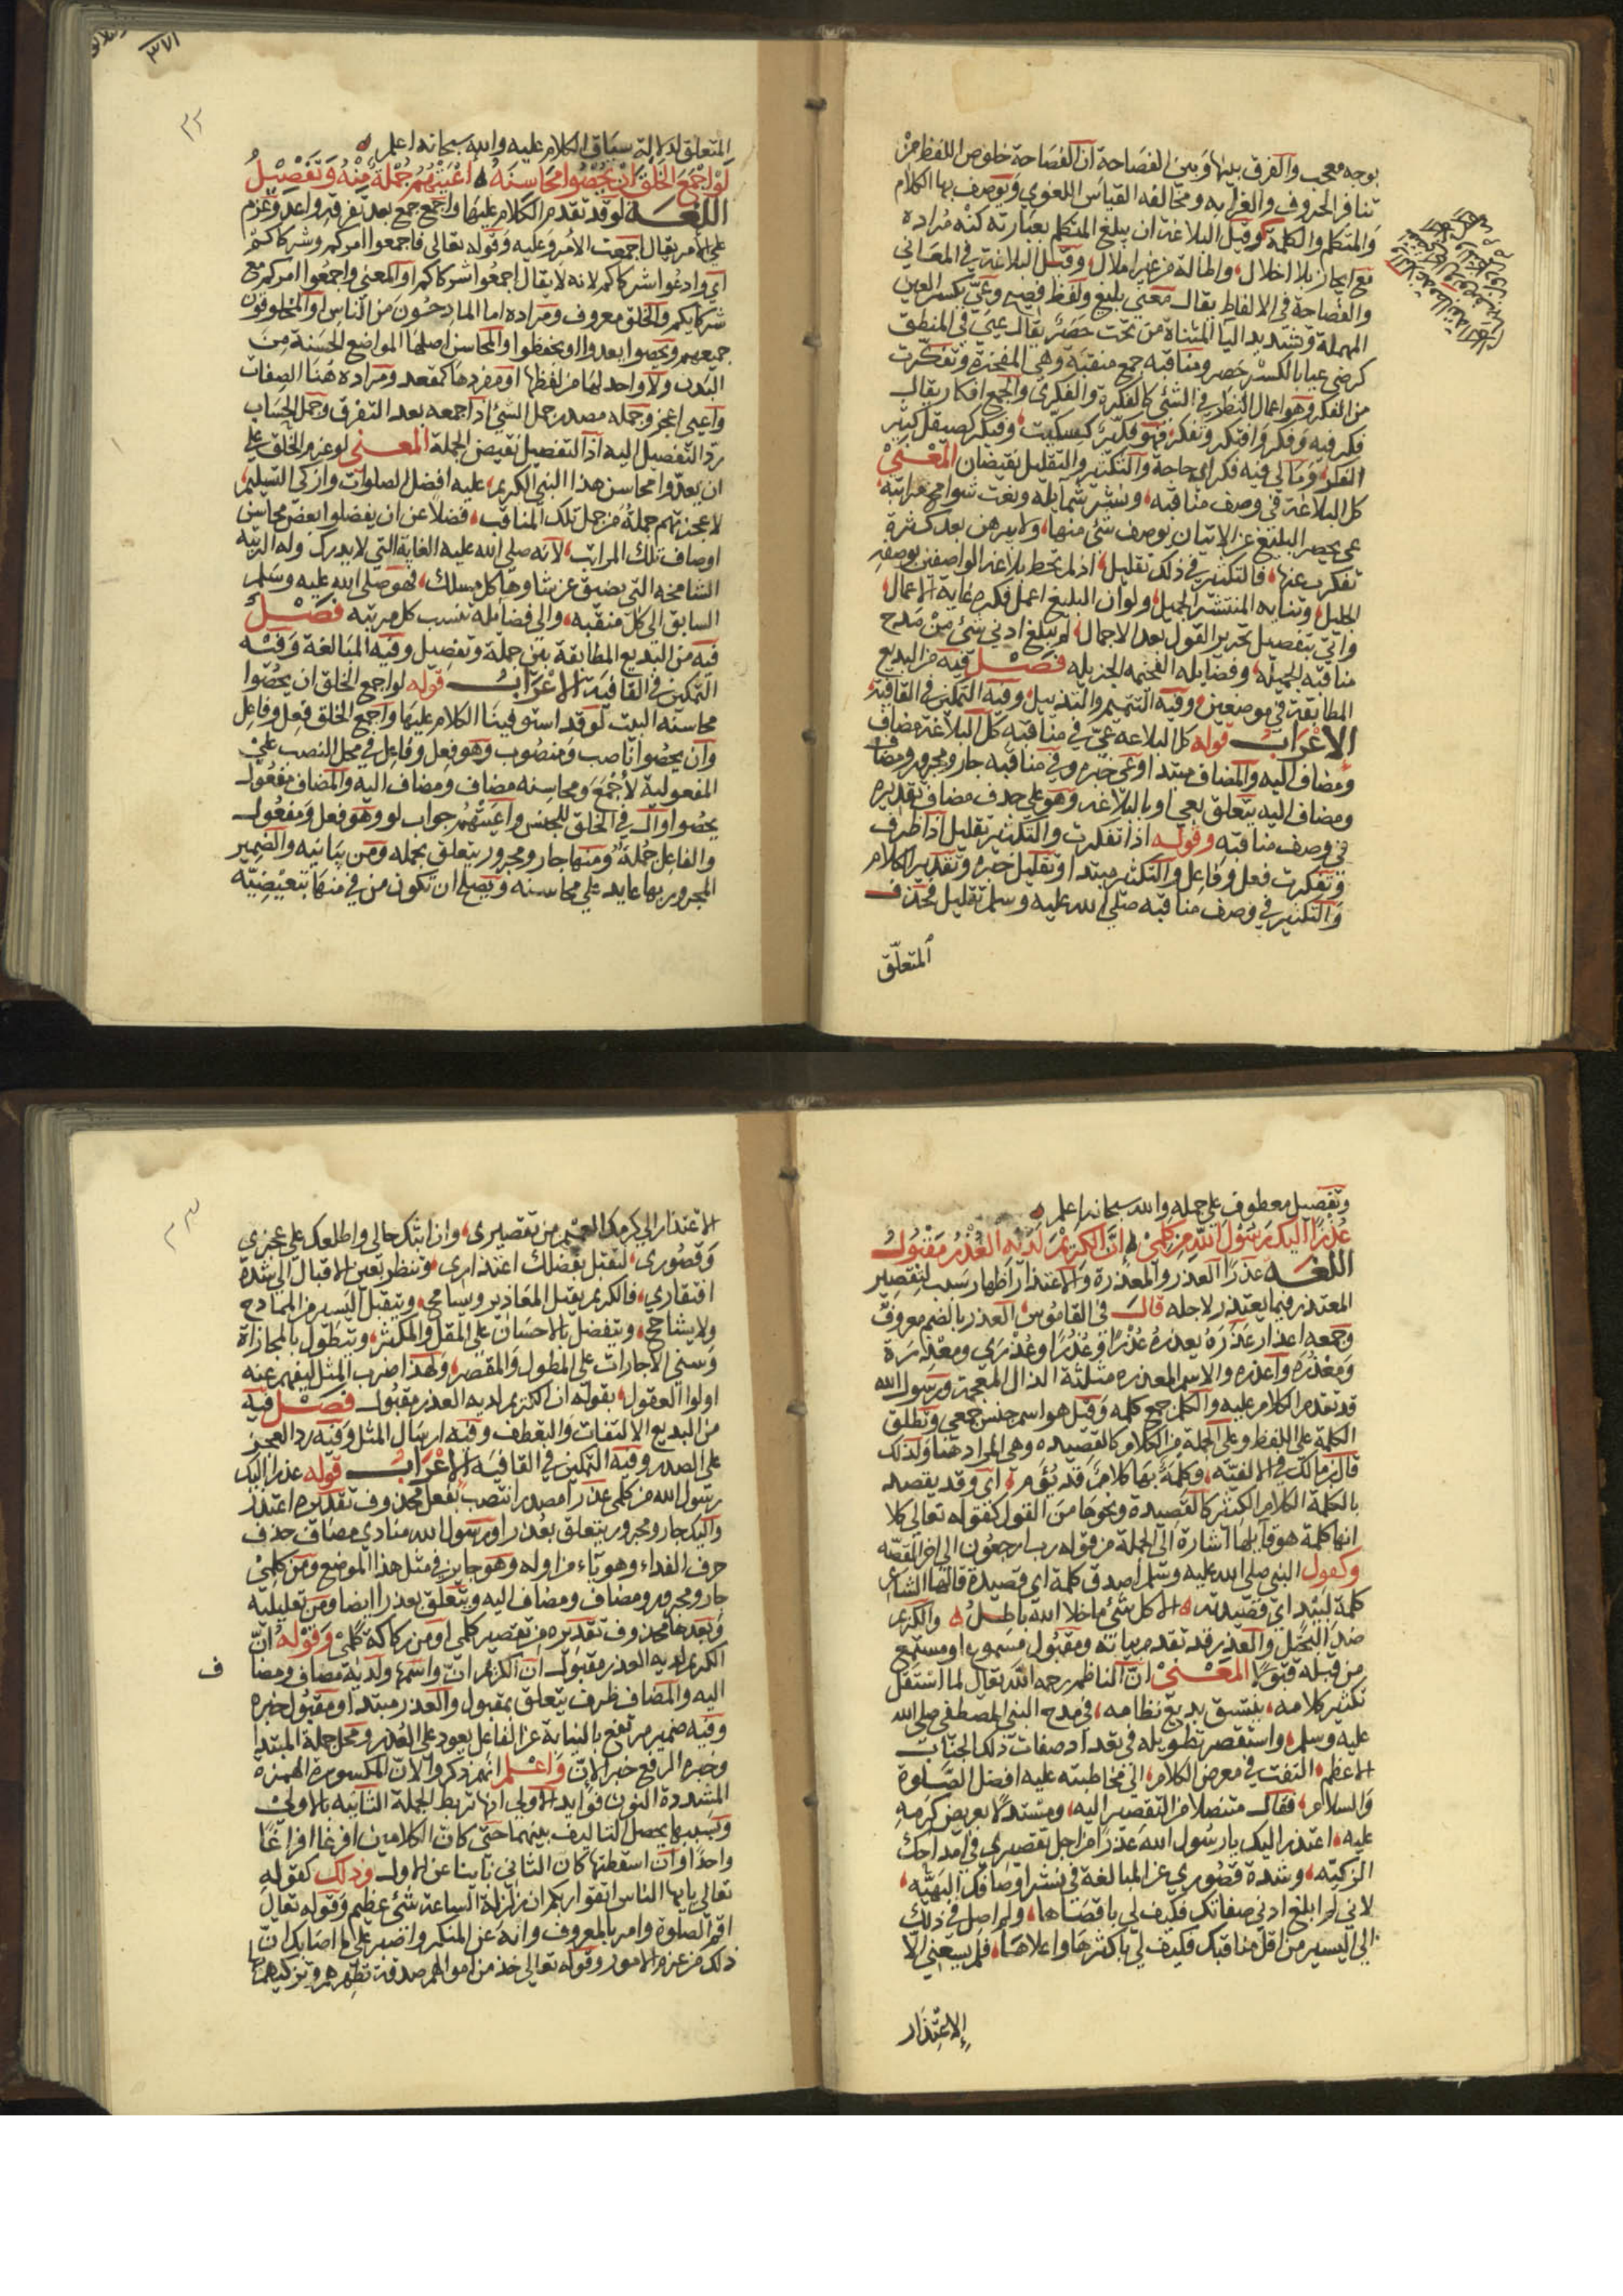 بوجه معجب والفرق بينها وبين الفصاحة ان الفصاحة خلوص اللفظ من
تنافر الحروف والغرابه ومخالفه القياس اللغوي ويوصف بها الكلام
والمتكلم والكلمة وقيل البلاغة ان يبلغ المتكلم بعبارته كنه مراده
مع ايجاز بلا اخلال واطالة من غير املال وقيل البلاغة في المعاني
والفصاحة في الالفاظ يقال معنى بليغ ولفظ فصيح وعيّ بكسر العين
المهملة وتشديد اليا المثناة من تحت حَصَرٌ يقال عيي في المنطق
كرضي عيا بالكسر حصر ومناقبه جمع منقبة وهي المفخرة وتفكرت
من الفكر وهو اعمال النظر في الشئ كالفكرة والفكرى والجمع افكار يقال
فكر فيه وفكر وافتكر وتفكر فهو فكّير كسكّيت وفيكر كصيقل كثير
الفكر وما لي فيه فكر اي حاجة والتكثير والتقليل نقيضان المعني
كل البلاغة في وصف مناقبه ونشر شمايله ونعت شوامخ مراتبه
عي يحصر البليغ عن الاتيان بوصف شئ منها ولا يبرهن بعد كثرة
تفكره عنها فالتكثير في ذلك تقليل اذ لم تحط بلاغة الواصفين بوصفه
الجليل وثنايه المنتشر الجميل ولو ان البليغ اعمل فكره غاية الاعمال
واتى بتفصيل تحرير القول بعد الاجمال لم يبلغ ادنى شئ من مدح
مناقبه الجميله وفضايله الفخيمه الجزيله فصل فيه من البديع
المطابقة في موضعين وفيه التتميم والتذييل وفيه التمكين في القافية
الاعراب قوله كل البلاغه عيّ في مناقبه كل البلاغة مضاف
ومضاف اليه والمضاف مبتدا وعي خبره وفي مناقبه جار ومجرور ومضاف
ومضاف اليه يتعلق بعي او بالبلاغه وهو على حذف مضاف تقديره
في وصف مناقبه وقوله اذا تفكرت والتكثير تقليل اذا ظرف
وتفكرت فعل وفاعل والتكثير مبتدا وتقليل خبره وتقدير الكلام
والتكثير في وصف مناقبه صلى الله عليه وسلم تقليل فحذف
المتعلق
٣٧١
٣٢
المتعلق لدلالة سياق الكلام عليه والله سبحانه اعلم
لو اجمع الخلق ان يحصوا محاسنه اعيتهم جملة منه وتفصيل
اللغه لو قد تقدم الكلام عليها واجمع جمع بعد تفرقه واعد وعزم
على الامر يقال اجمعت الامر وعليه وقوله تعالى فاجمعوا امركم وشركاءكم
اي وادعوا شركاكم لانه لا يقال اجمعوا شركاكم او المعنى واجمعوا امركم مع
شركايكم والخلق معروف ومراده اما المادحون من الناس او المخلوقون
جميعهم ويحصوا يعدوا او يحفظوا والمحاسن اصلها المواضع الحسنة من
البدن ولا واحد لها من لفظها او مفردها كمقعد ومراده هنا الصفات
واعيى اعجز وجمله مصدر جمل الشئ اذا جمعه بعد التفرق وجمل الحساب
ردّ التفصيل اليه اذ التفصيل نقيض الجملة المعنى لو عزم الخلق على
ان يعدّوا محاسن هذا النبي الكريم عليه افضل الصلوات وازكى التسليم
لاعجزتهم جملة من جمل تلك المناقب فضلا عن ان يفصلوا بعض محاسن
اوصاف تلك المراتب لانه صلى الله عليه الغاية التي لا يدرك وله الرتبة
الشامخه التي يضيق عن شاوها كل مسلك فهو صلى الله عليه وسلم
السابق الى كل منقبه والى فضائله تنسب كل مرتبه فصل
فيه من البديع المطابقة بين جملة وتفصيل وفيه المبالغة وفيه
التمكين في القافية الاعراب قوله لو اجمع الخلق ان يحصوا
محاسنه البيت لو قد استوفينا الكلام عليها واجمع الخلق فعل وفاعل
وان يحصوا ناصب ومنصوب وهو فعل وفاعل في محل النصب على
المفعولية لاجمع ومحاسنه مضاف ومضاف اليه والمضاف مفعول
يحصوا وال في الخلق للجنس واعيتهم جواب لو وهو فعل ومفعول
والفاعل جملة ومنها جار ومجرور يتعلق بجمله ومن بيانيه والضمير
المجرور بها عايد على محاسنه ويصح ان تكون من في منها تبعيضيه
وتفصيل معطوف على جمله والله سبحانه اعلم
عذرا اليك رسول الله من كلمي ان الكريم لديه العذر مقبول
اللغه عذرا العذر والمعذرة والاعتذار اظهار سبب لتقصير
المعتذر فيما يعتذر لاجله قال في القاموس العذر بالضم معروف
وجمعه اعذار عَذَرَهُ يعذره عذرًا وعُذُرًا وعُذرى ومعذرة
ومعذُرَه واعذره والاسم المعذره مثلثة الذال المعجمة ورسول الله
قد تقدم الكلام عليه والكلم جمع كلمه وقيل هو اسم جنس جمعي وتطلق
الكلمة على اللفظ وعلى الجملة من الكلام كالقصيده وهي المراد هنا ولذلك
قال بن مالك في الالفيّه وكلمة بها كلام قد يؤم اي وقد يقصد
بالكلمة الكلام الكثير كالقصيدة ونحوها من القول كقوله تعالى كلا
انها كلمة هو قايلها اشارة الى الجملة من قوله رب ارجعون الى اخر القصّه
وكقول النبي صلى الله عليه وسلم اصدق كلمة اي قصيدة قالها الشاعر
كلمة لبيد اي قصيدته الا كل شئ ما خلا الله باطل والكريم
ضد البخيل والعذر قد تقدم بيانه ومقبول مسموع او مستمع
من قبله قبولا المعنى ان الناظم رحمه الله تعالى لما استقل
تكثير كلامه بتنسيق بديع نظامه في مدح النبي المصطفى صلى الله
عليه وسلم واستقصر تطويله في تعداد صفات ذلك الجناب
الاعظم التفت في معرض الكلام الى مخاطبته عليه افضل الصلوة
والسلام فقال متنصلا من التقصير اليه ومستدلا بعريض كرمه
عليه اعتذر اليك يا رسول الله عذرا من اجل تقصيري في امداحك
الزكيّه وشدة قصوري عن المبالغة في نشر اوصافك البهيّه
لاني لم ابلغ ادنى صفاتك فكيف لي باقصاها ولم اصل في ذلك
الى اليسير من اقل مناقبك فكيف لي باكثرها واعلاها فلم يسعني الا
الاعتذار
٣٣
الاعتذار الى كرمك العميم من تقصيري وان ابثك حالي واطلعك على عجزي
وقصوري لتقبل بفضلك اعتذاري وتنظر بعين الاقبال الى شدة
افتقاري فالكريم يقبل المعاذير ويسامح ويتقبل اليسير من المادح
ولا يشاحح ويتفضل بالاحسان على المقل والمكثر ويتطول بالمجازاة
وسني الاجازات على المطول والمقصر ولهذا ضرب المثل ليفهم عنه
اولوا العقول بقوله ان الكريم لديه العذر مقبول فصل فيه
من البديع الالتفات والتعطف وفيه ارسال المثل وفيه رد العجز
على الصدر وفيه التمكين في القافيه الاعراب قوله عذرا اليك
رسول الله من كلمي عذرا مصدر انتصب بفعل محذوف تقديره اعتذر
واليك جار ومجرور يتعلق بعذرا ورسول الله منادى مضاف حذف
حرف النداء وهو ياء من اوله وهو جايز في مثل هذا الموضع ومن كلمي
جار ومجرور ومضاف ومضاف اليه ويتعلق بعذرا ايضا ومن تعليليه
وبعدها محذوف تقديره من تقصير كلمي او من ركاكة كلمي وقوله ان
الكريم لديه العذر مقبول ان الكريم ان واسمها ولديه مضاف ومضا
ف
اليه والمضاف ظرف يتعلق بمقبول والعذر مبتدا ومقبول خبره
وفيه ضمير مرتفع بالنيابة عن الفاعل يعود على العذر ومحل جملة المبتدا
وخبره الرفع خبر لان واعلم انهم ذكروا لان المكسورة الهمزه
المشددة النون فوايد الاولى انها تربط الجملة الثانيه بالاولى
وبسببها يحصل التاليف بينهما حتى كان الكلامين افرغا افراغا
واحدا وان اسقطتها كان الثاني نابيا عن الاول وذلك كقوله
تعالى يايها الناس اتقوا ربكم ان زلزلة الساعة شئ عظيم وقوله تعالى
اقم الصلوة وامر بالمعروف وانه عن المنكر واصبر على ما اصابك ان
ذلك من عزم الامور وقوله تعالى خذ من اموالهم صدقة تطهرهم وتزكيهم بها